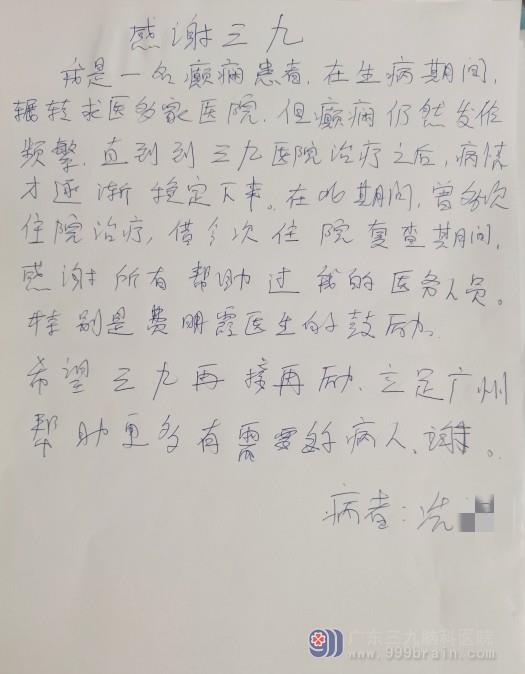 感谢三九
我是一名癫痫患者，在生病期间，
辗转求医多家医院，但癫痫仍然发作
频繁，直到到三九医院治疗之后，病情
才逐渐稳定下来。在此期间，曾多次
住院治疗，借今次住院复查期间，
感谢所有帮助过我的医务人员。
特别是费明霞医生的鼓励。
希望三九再接再励、立足广州
帮助更多有需要的病人、谢谢。
病者：冼
广东三九脑科医院
www.999brain.com